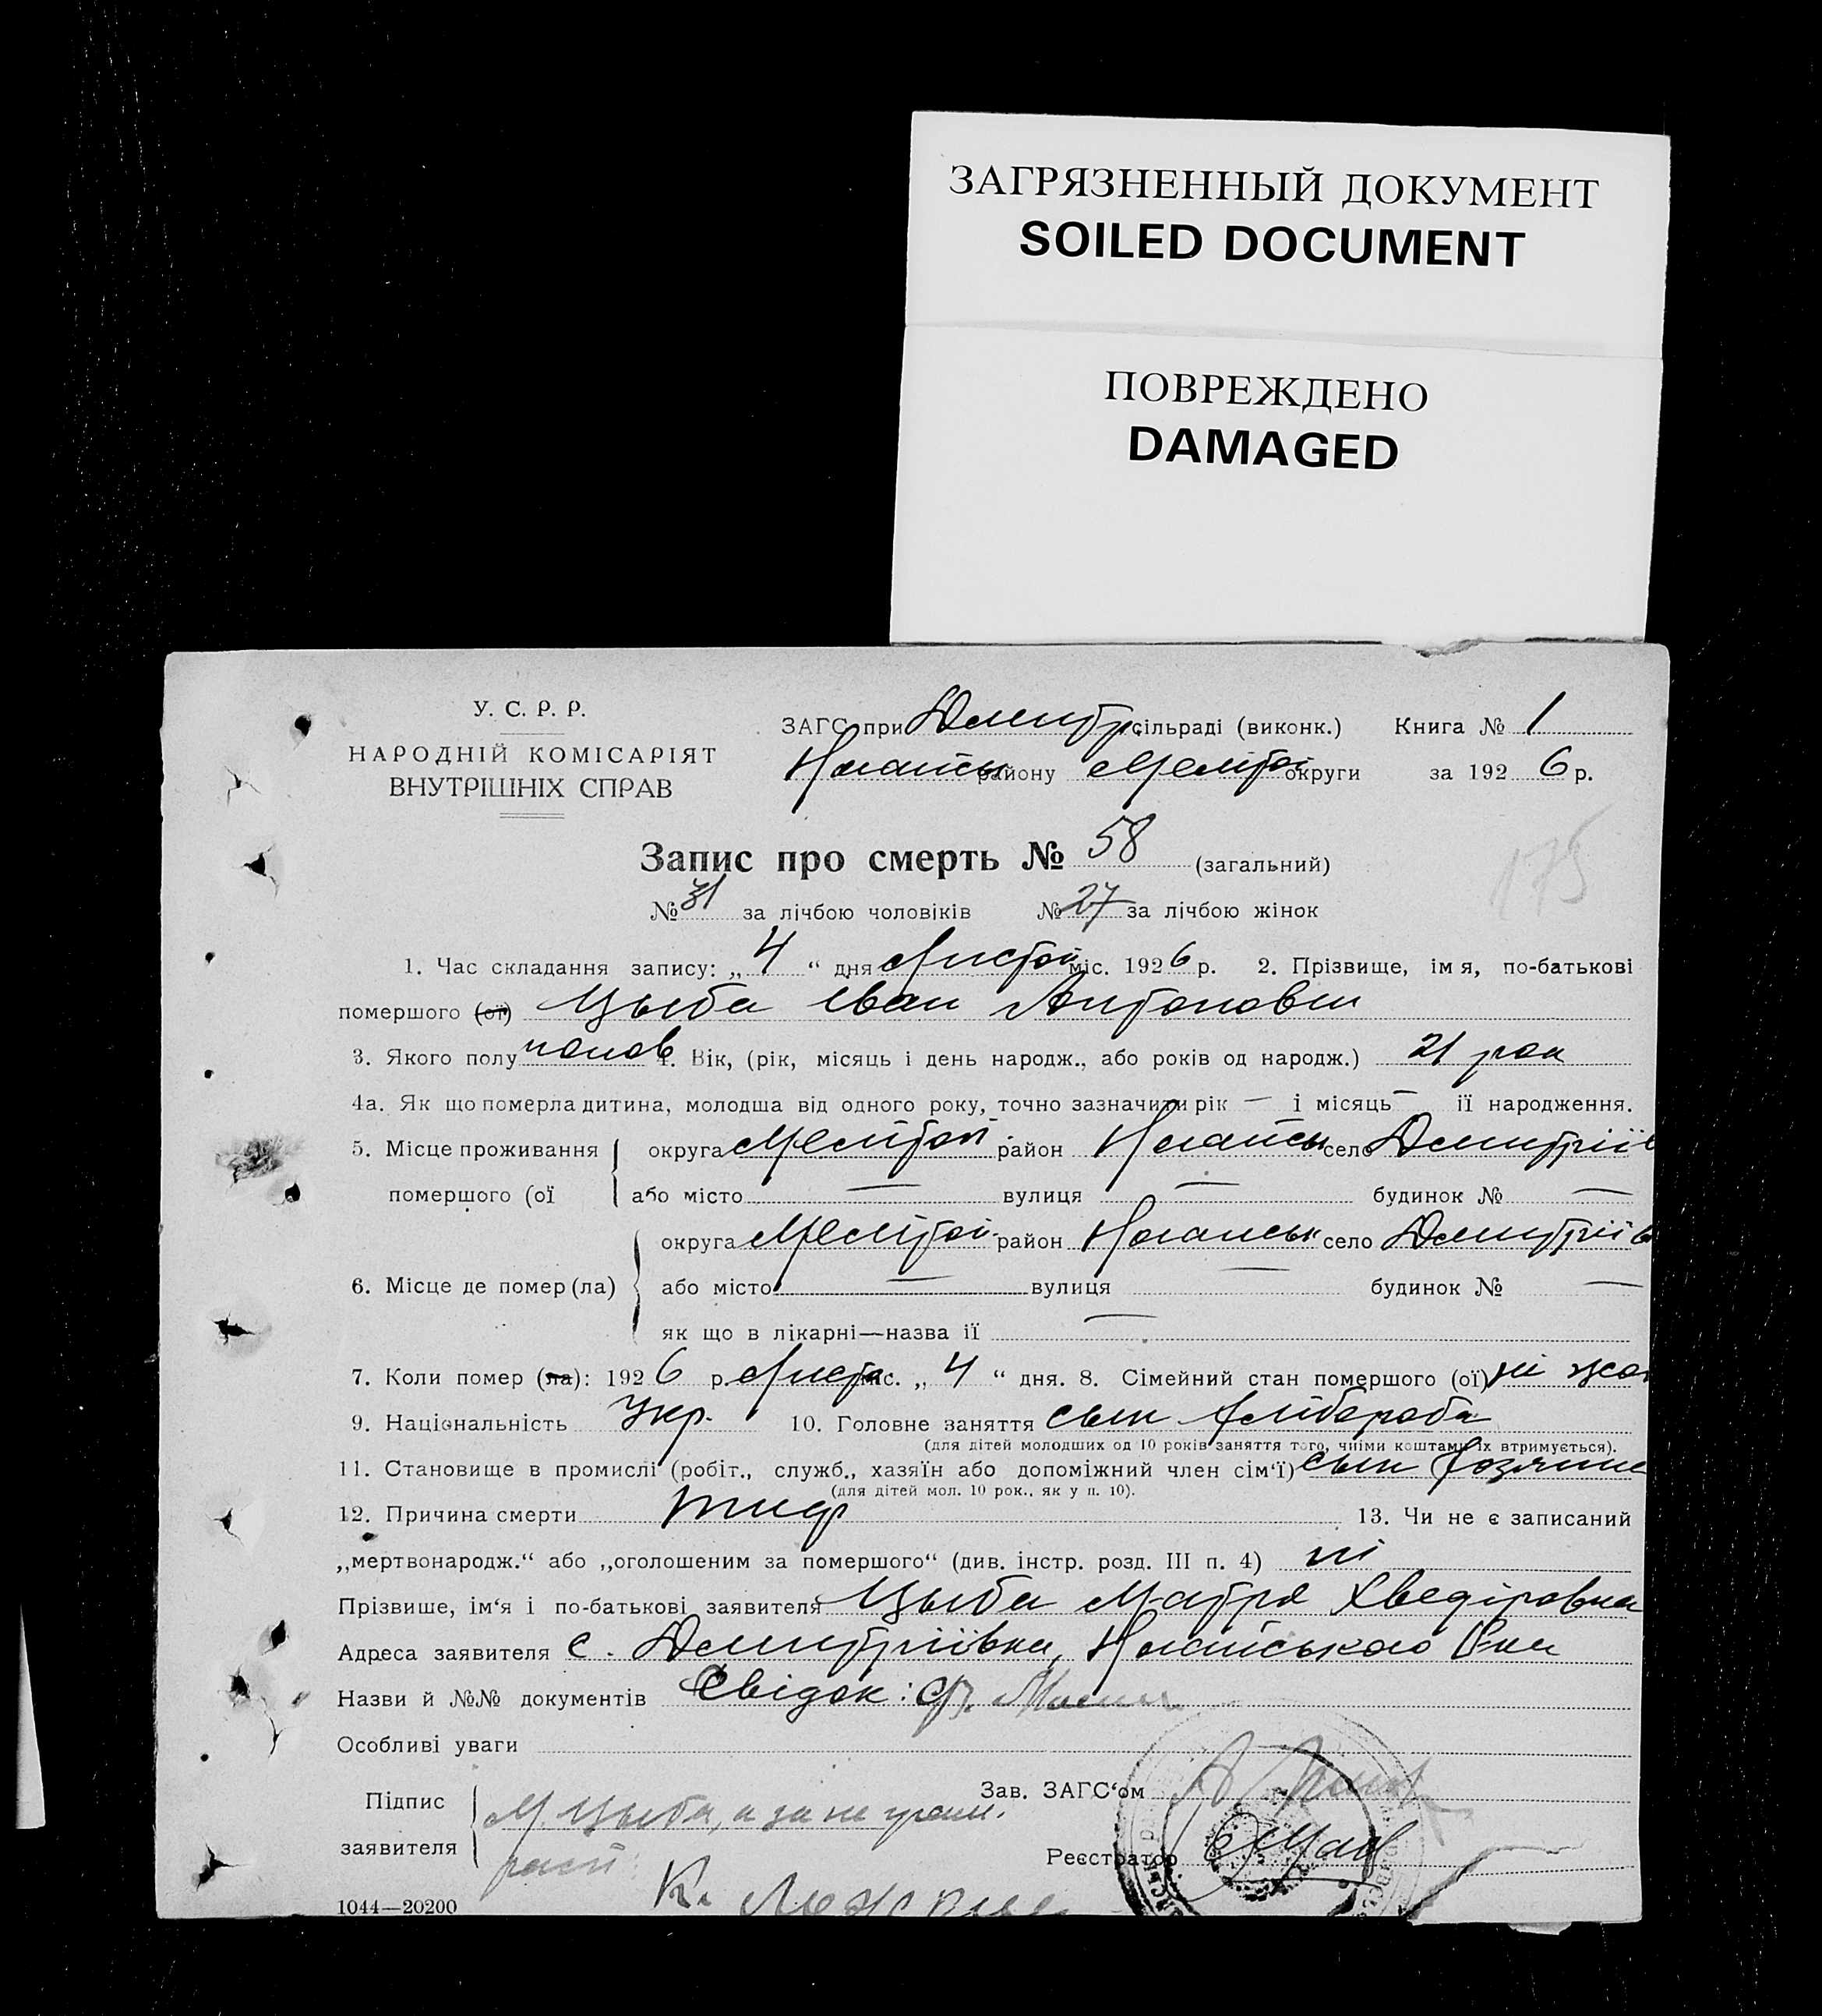 ЗАГРЯЗНЕННЫЙ ДОКУМЕНТ
SOILED DOCUMENT
ПОВРЕЖДЕНО
DAMAGED
У. С. Р. Р.
НАРОДНІЙ КОМІСАРІЯТ
ВНУТРІШНІХ СПРАВ
ЗАГС при Дмитр. сільраді (виконк.) Книга № 1
району округи за 1926 р.
Запис про смерть № 58 (загальний)
№ 31 за лічбою чоловіків № 27 за лічбою жінок
1. Час складання запису: „ 4 “ дня Листоп міс. 1926 р. 2. Прізвище, імя, по-батькові
помершого (ої) Цыба Іван Антонович
3. Якого полу 4. Вік, (рік, місяць і день народж., або років од народж.) 21 рок
4а. Як що померла дитина, молодша від одного року, точно зазначити рік — і місяць — її народження.
5. Місце проживання округа Меліtop. район Ногайськ село Дмитріїв
помершого (ої або місто — вулиця — будинок № —
округа район Ногайськ село Дмитріїв
6. Місце де помер (ла) або місто — вулиця — будинок № —
як що в лікарні—назва її —
7. Коли помер (ла): 1926 р. міс. „ 4 “ дня. 8. Сімейний стан помершого (ої) ні жон
9. Національність Укр. 10. Головне заняття сын хлібороба
(для дітей молодших од 10 років заняття того, чиїми коштами їх втримується).
11. Становище в промислі (робіт., служб., хазяїн або допоміжний член сім‘ї) сын хозяина
(для дітей мол. 10 рок., як у п. 10).
12. Причина смерти тиф 13. Чи не є записаний
„мертвонародж.“ або „оголошеним за помершого“ (див. інстр. розд. III п. 4) ні
Прізвише, ім‘я і по-батькові заявителя Цыба Мотря Хведіровна
Адреса заявителя с. Дмитріївка, Ногайського Р-на
Назви й №№ документів Свідок:
Особливі уваги
Зав. ЗАГС‘ом
Підпис М Цыба, а за не грам.
заявителя
Реєстратор
1044—20200